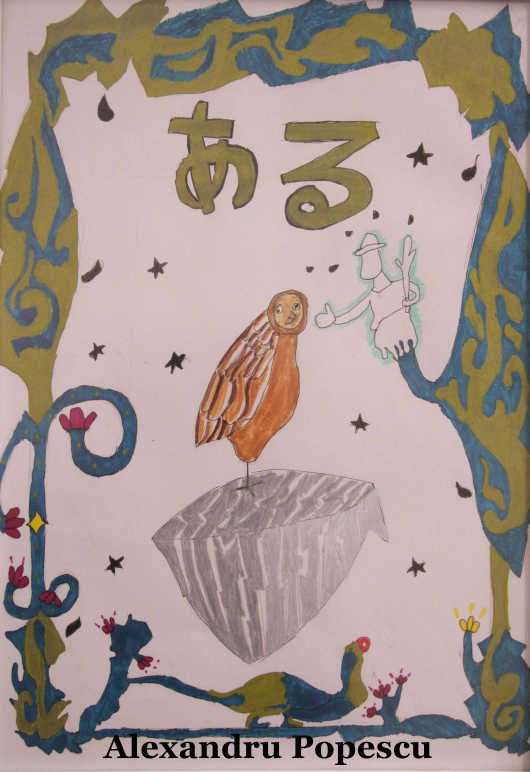 ある
Alexandru Popescu